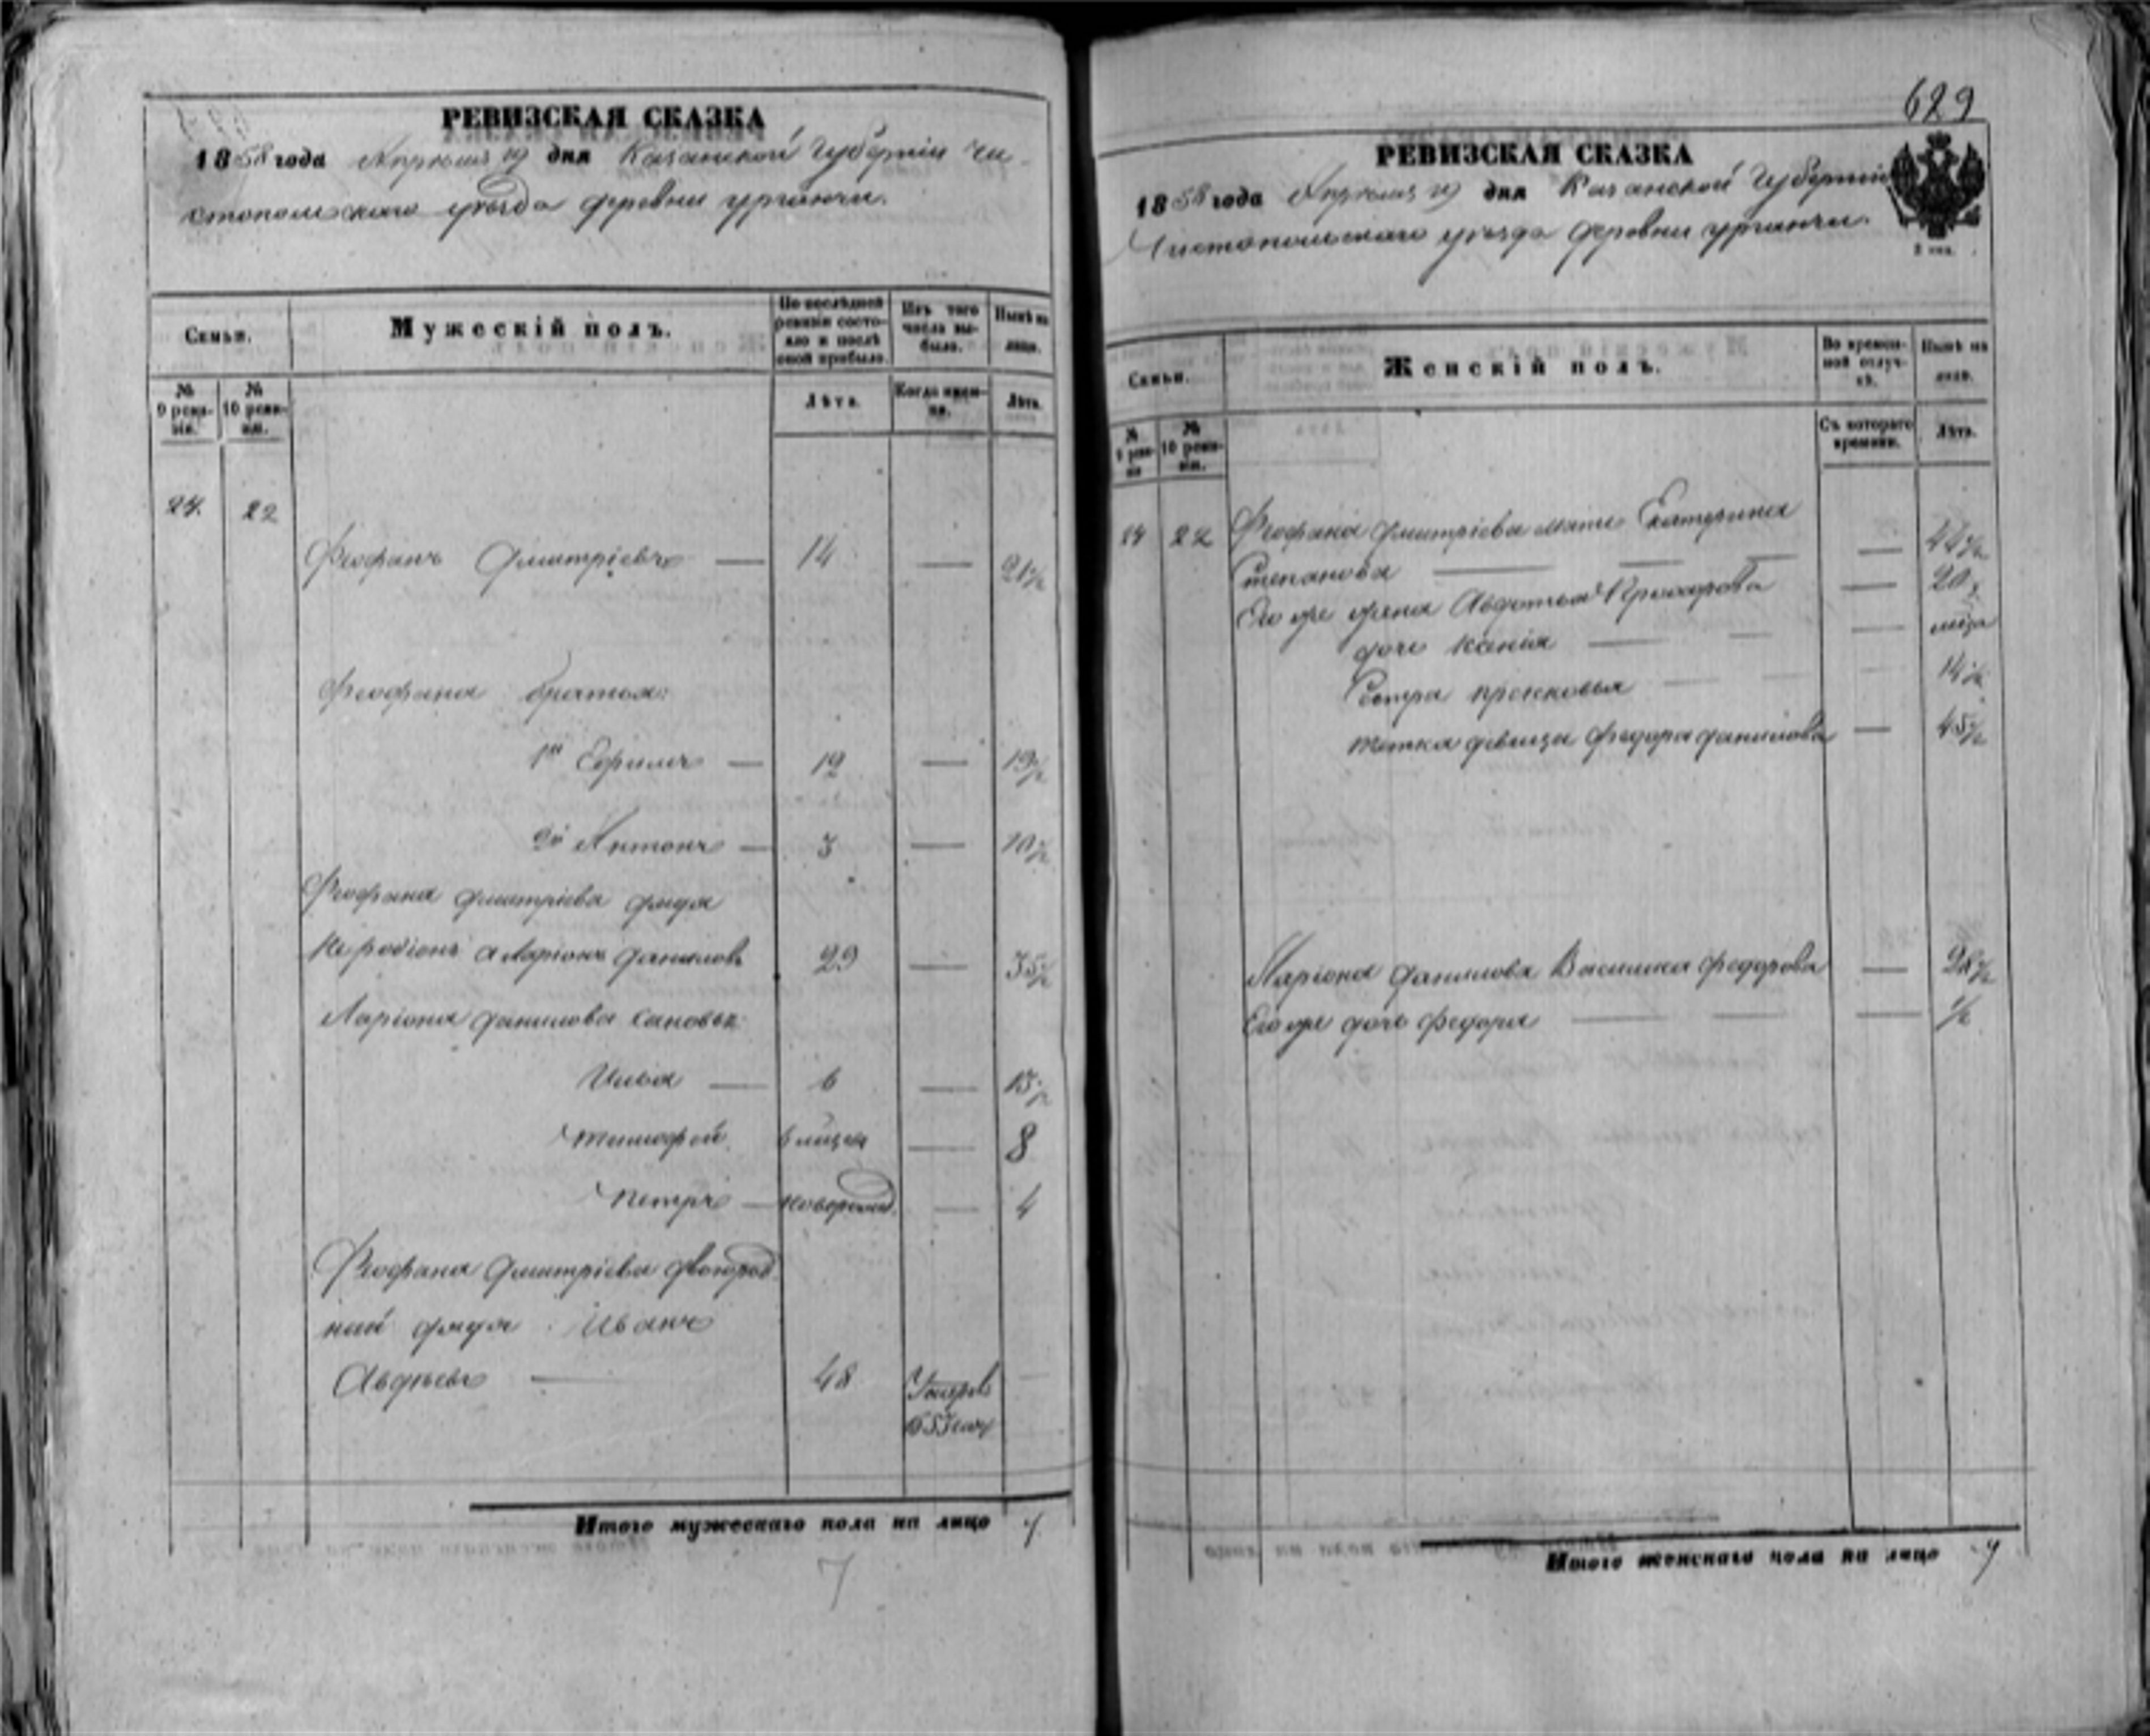 РЕВИЗСКАЯ СКАЗКА
1858 года Апреля 19 дня Казанской Губернiи Чи-
стопольскаго уезда деревни урганчи.
Семьи.
Мужескiй полъ.
По последней ревизiи состояло и после оной прибыло.
Изъ того числа выбыло.
Ныне на лицо.
№ 9 ревизiи.
№ 10 ревизiи.
Лѣта.
Когда именно.
Лѣта.
24. 22
Феофанъ Дмитрiевъ — 14 — 21½
Феофана братья:
1й Ефимъ — 12 — 19½
2й Антонъ — 3 — 10½
Феофана Дмитрiева дядя
не родiонъ а Ларiонъ Даниловъ 29 — 35½
Ларiона Данилова сановья:
Илья — 6 — 13½
Тимофей 6 — 8
Петръ — новорожд. — 4
Феофана Дмитрiева двоюрод
ный дядя Иванъ
Авдеевъ — 48 Умеръ
Итого мужескаго пола на лицо 7
7
629
РЕВИЗСКАЯ СКАЗКА
1858 года Апреля 19 дня Казанской Губернiи
Чистопольскаго уезда деревни урганчи.
Семьи.
Женскiй полъ.
Во временной отлучкѣ.
Ныне на лицо.
№ 9 ревизiи
№ 10 ревизiи.
Съ котораго времени.
Лѣта.
24 22 Феофана Дмитрiева мать Екатерина
Степанова — — — — 44½
Его же жена Авдотья — 20
дочь Ксенiя — — —
Сестра прасковья — — — 14½
тетка девица Федора Данилова — 45½
Ларiона Данилова Василиса Федорова — 28½
Его же дочь Федора — — — ½
Итого женскаго пола на лицо 7